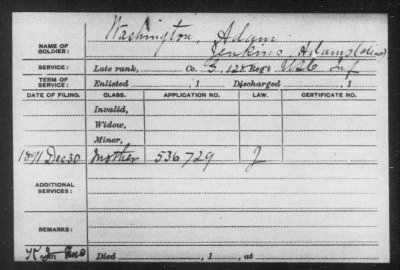 Washington, Adam
NAME OF SOLDIER: Jenkins, Adam (alias)
SERVICE: Late rank, Co. B, 128 Reg't U.S.C. Inf
TERM OF SERVICE: Enlisted , 1 Discharged , 1
DATE OF FILING. CLASS. APPLICATION NO. LAW. CERTIFICATE NO.
Invalid,
Widow,
Minor,
1891 Dec 30 Mother 536729 J
ADDITIONAL SERVICES:
REMARKS:
Died , 1 , at